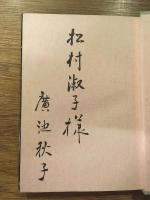 松村淑子様
廣池秋子